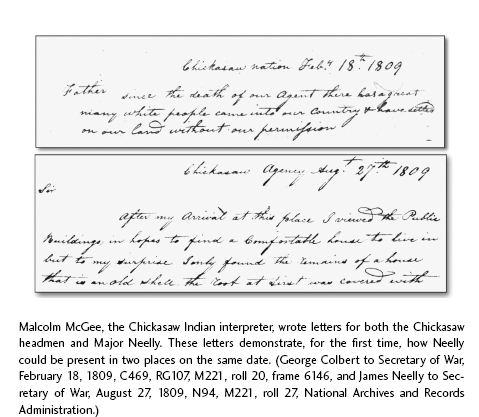 Chickasaw nation Feby 18th 1809
Father since the death of our Agent there has a great
many white people came into our Country & have setled
on our land without our permission
Chickasaw Agency Augt 27th 1809
Sir
After my Arrival at this place I viewed the Public
Buildings in hopes to find a Comfortable house to live in
but to my surprise I only found the remains of a house
that is an old shell the roof at first was covered with
Malcolm McGee, the Chickasaw Indian interpreter, wrote letters for both the Chickasaw
headmen and Major Neelly. These letters demonstrate, for the first time, how Neelly
could be present in two places on the same date. (George Colbert to Secretary of War,
February 18, 1809, C469, RG107, M221, roll 20, frame 6146, and James Neelly to Sec-
retary of War, August 27, 1809, N94, M221, roll 27, National Archives and Records
Administration.)